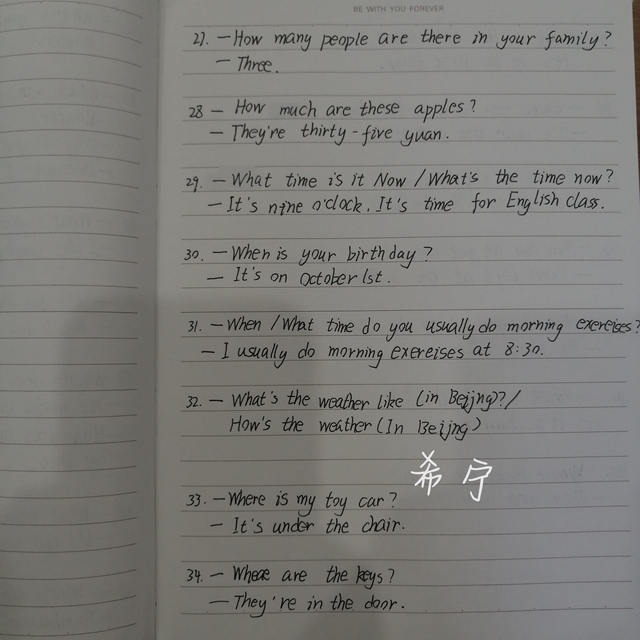 BE WITH YOU FOREVER
27. — How many people are there in your family?
— Three.
28 — How much are these apples?
— They're thirty-five yuan.
29. — What time is it Now / What's the time now?
— It's nine o'clock. It's time for English class.
30. — When is your birthday?
— It's on October 1st.
31. — When / What time do you usually do morning exereises?
— I usually do morning exereises at 8:30.
32. — What's the weather like (in Beijng)? /
How's the weather (In Beijng)
希宁
33. — Where is my toy car?
— It's under the chair.
34. — Where are the keys?
— They're in the door.